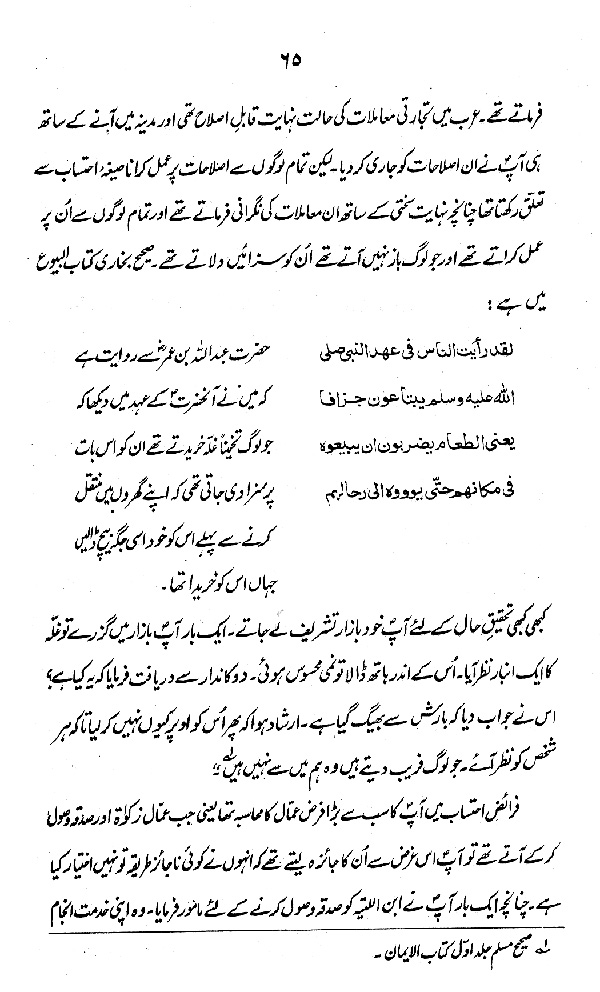 ۶۵
فرماتے تھے۔ عرب میں تجارتی معاملات کی حالت نہایت قابلِ اصلاح تھی اور مدینہ میں آنے کے ساتھ
ہی آپؐ نے ان اصلاحات کو جاری کر دیا۔ لیکن تمام لوگوں سے اصلاحات پر عمل کرانا صیغۂ احتساب سے
تعلق رکھتا تھا چنانچہ نہایت سختی کے ساتھ ان معاملات کی نگرانی فرماتے تھے اور تمام لوگوں سے اُن پر
عمل کراتے تھے اور جو لوگ باز نہیں آتے تھے اُن کو سزائیں دلاتے تھے۔ صحیح بخاری کتاب البیوع
میں ہے :
لقد رأیت الناس فی عهد النبی صلی
الله علیه وسلم یبتاعون جزافا
یعنی الطعام یضربون ان یبیعوه
فی مکانهم حتّٰی یوووه الی رحالهم
حضرت عبداللہ بن عمرؓ سے روایت ہے
کہ میں نے آنحضرتؐ کے عہد میں دیکھا کہ
جو لوگ تخمیناً غلہ خریدتے تھے ان کو اس بات
پر سزا دی جاتی تھی کہ اپنے گھروں میں منتقل
کرنے سے پہلے اس کو خود اسی جگہ بیچ ڈالیں
جہاں اس کو خریدا تھا۔
کبھی کبھی تحقیقِ حال کے لئے آپؐ خود بازار تشریف لے جاتے۔ ایک بار آپؐ بازار میں گزرے تو غلّہ
کا ایک انبار نظر آیا۔ اُس کے اندر ہاتھ ڈالا تو نمی محسوس ہوئی۔ دوکاندار سے دریافت فرمایا کہ یہ کیا ہے؟
اس نے جواب دیا کہ بارش سے بھیگ گیا ہے۔ ارشاد ہوا کہ پھر اُس کو اوپر کیوں نہیں کر لیا تاکہ ہر
شخص کو نظر آئے۔ جو لوگ فریب دیتے ہیں وہ ہم میں سے نہیں ہیں لہ“
فرائضِ احتساب میں آپؐ کا سب سے بڑا فرض عمّال کا محاسبہ تھا یعنی جب عمّال زکوٰۃ اور صدقہ وصول
کر کے آتے تھے تو آپؐ اس غرض سے اُن کا جائزہ لیتے تھے کہ انہوں نے کوئی ناجائز طریقہ تو نہیں اختیار کیا
ہے۔ چنانچہ ایک بار آپؐ نے ابن اللتیہ کو صدقہ وصول کرنے کے لئے مامور فرمایا۔ وہ اپنی خدمت انجام
لہ صحیح مسلم جلد اوّل کتاب الایمان۔